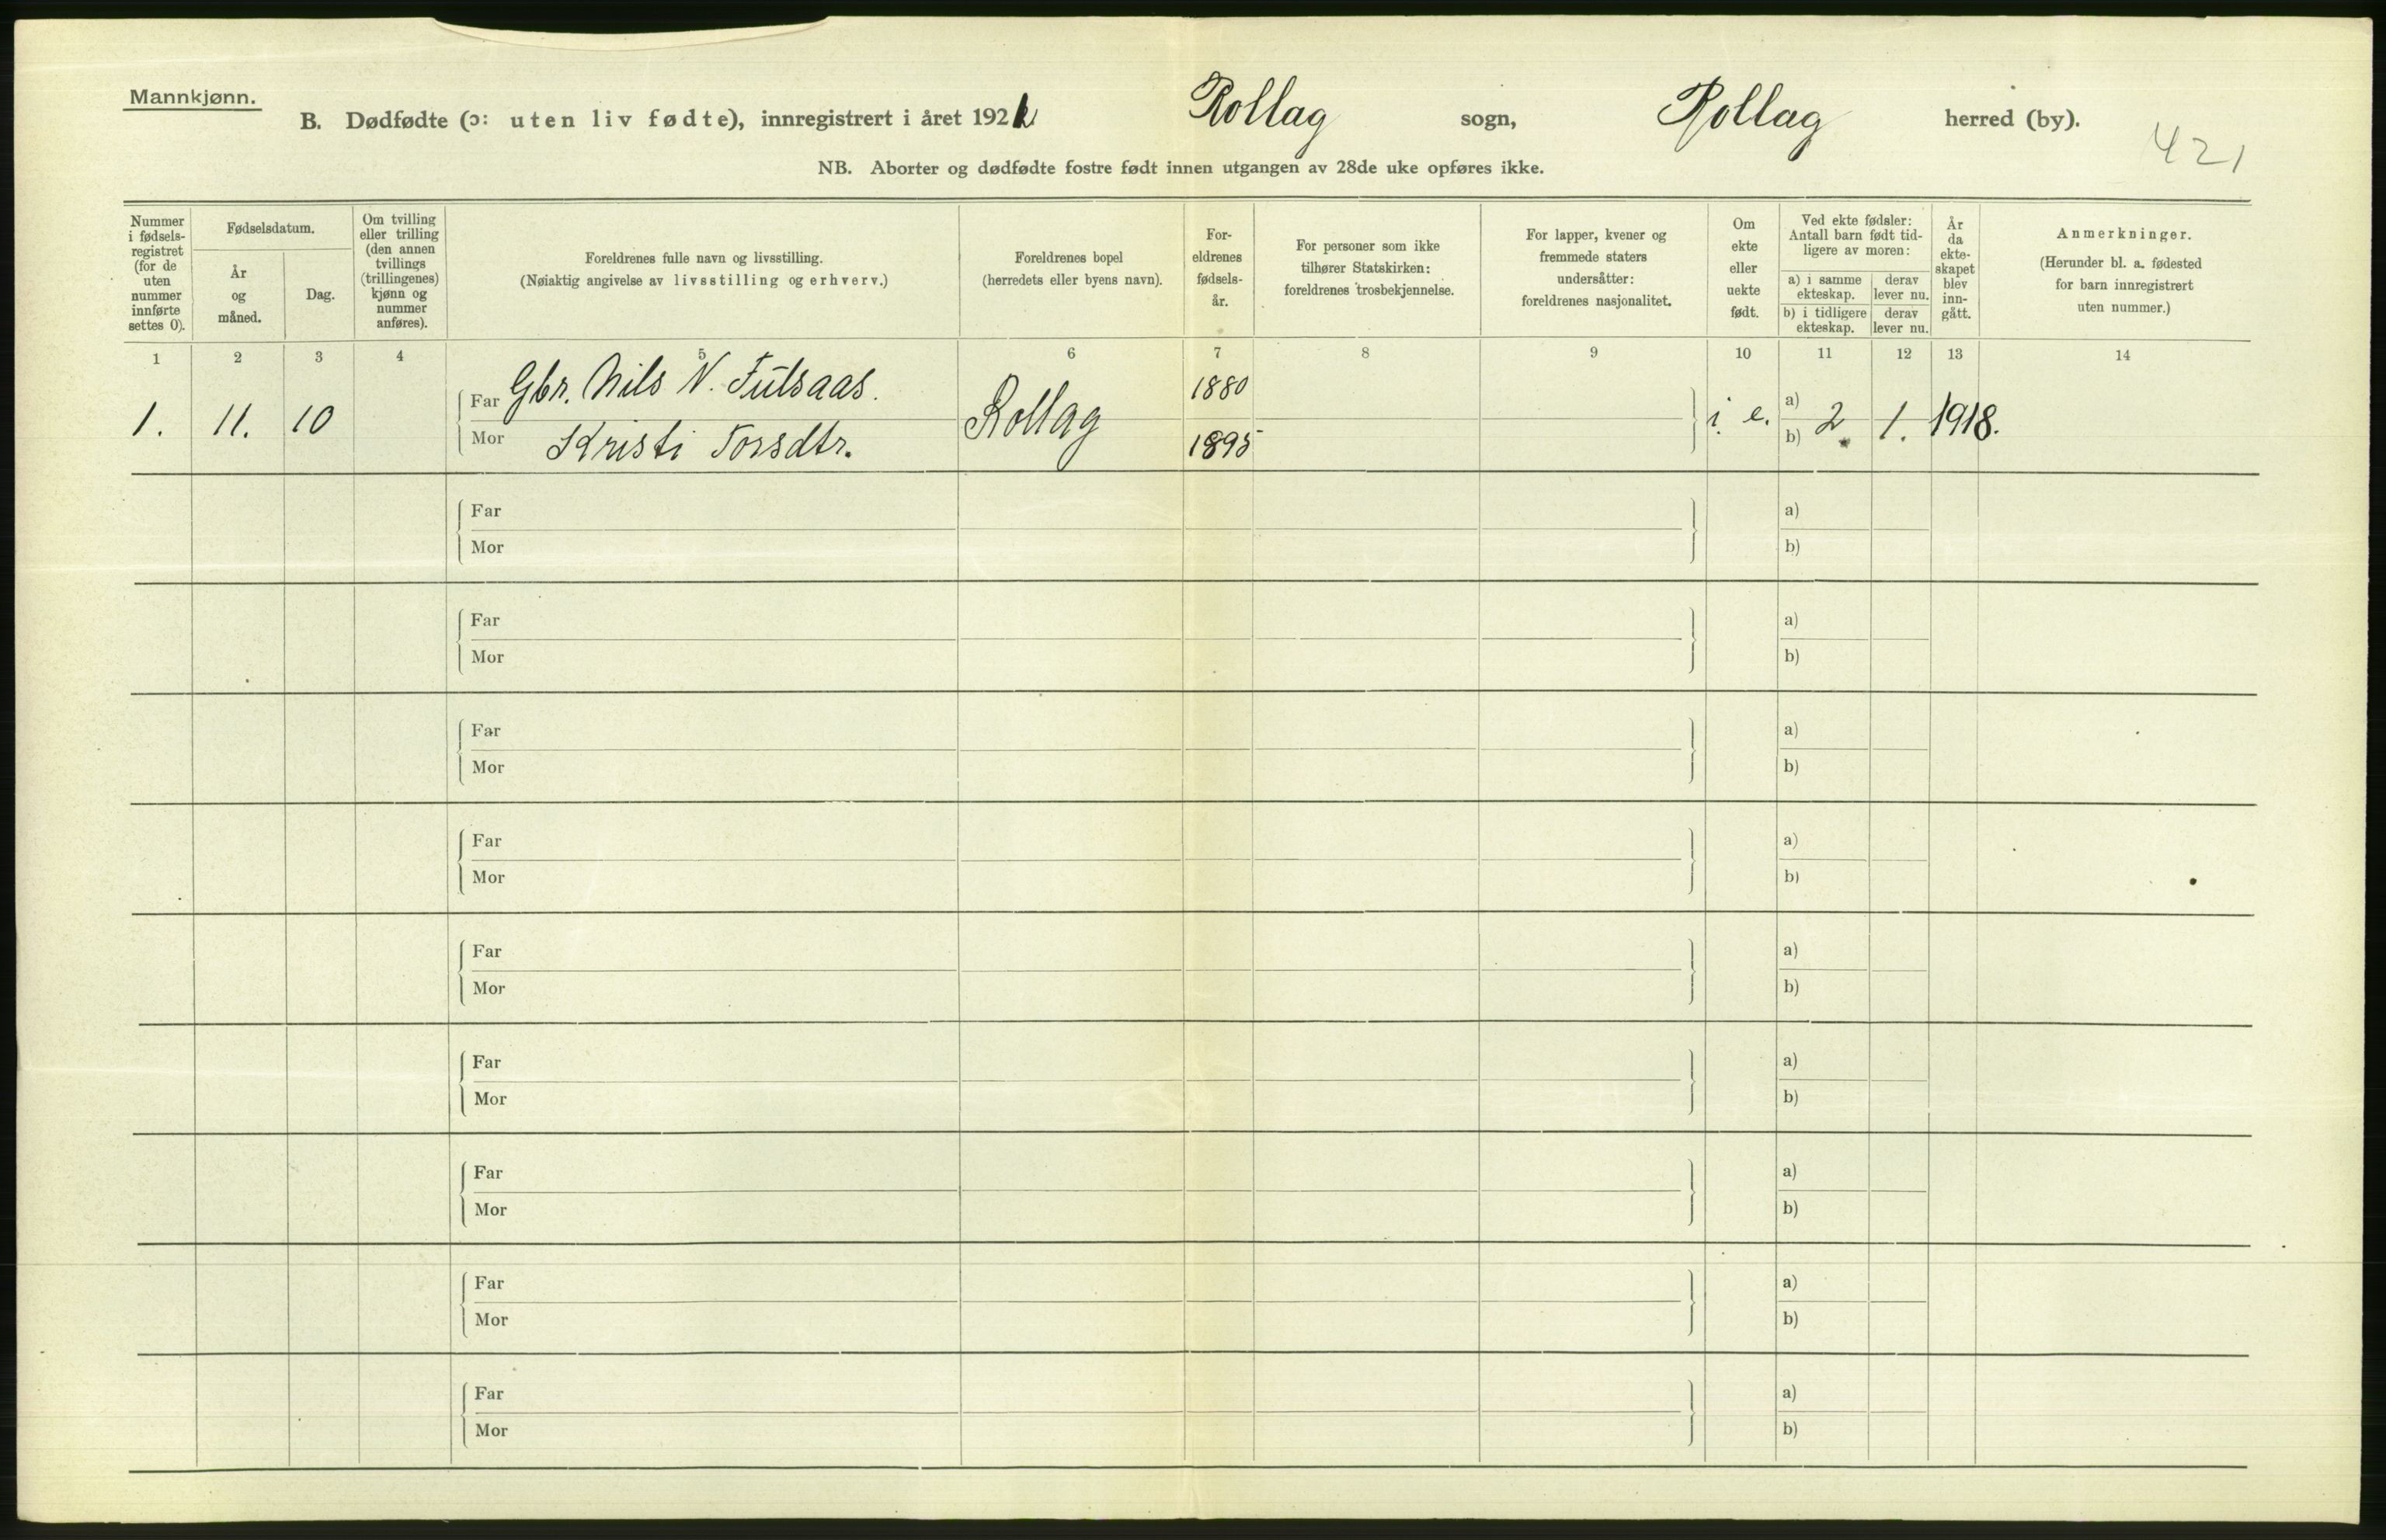 Mannkjønn.
B. Dødfødte (ɔ: uten liv fødte), innregistrert i året 192 Rollag sogn, Rollag herred (by).
421
NB. Aborter og dødfødte fostre født innen utgangen av 28de uke opføres ikke.
Nummer
i fødsels-
registret
(for de
uten
nummer
innførte
settes 0).
Fødselsdatum.
År
og
måned.
Dag.
Om tvilling
eller trilling
(den annen
tvillings
(trillingenes)
kjønn og
nummer
anføres).
Foreldrenes fulle navn og livsstilling.
(Nøiaktig angivelse av livsstilling og erhverv.)
Foreldrenes bopel
(herredets eller byens navn).
For-
eldrenes
fødsels-
år.
For personer som ikke
tilhører Statskirken:
foreldrenes trosbekjennelse.
For lapper, kvener og
fremmede staters
undersåtter:
foreldrenes nasjonalitet.
Om
ekte
eller
uekte
født.
Ved ekte fødsler:
Antall barn født tid-
ligere av moren:
a) i samme
ekteskap.
derav
lever nu.
b) i tidligere
ekteskap.
derav
lever nu.
År
da
ekte-
skapet
blev
inn-
gått.
Anmerkninger.
(Herunder bl. a. fødested
for barn innregistrert
uten nummer.)
1 2 3 4 5 6 7 8 9 10 11 12 13 14
Far Gbr. Nils N. Fulsaas. 1880 a)
1. 11. 10 Rollag i. e. 2. 1. 1918.
Mor Kristi Torsdtr. 1895 b)
Far a)
Mor b)
Far a)
Mor b)
Far a)
Mor b)
Far a)
Mor b)
Far a)
Mor b)
Far a)
Mor b)
Far a)
Mor b)
Far a)
Mor b)
Far a)
Mor b)